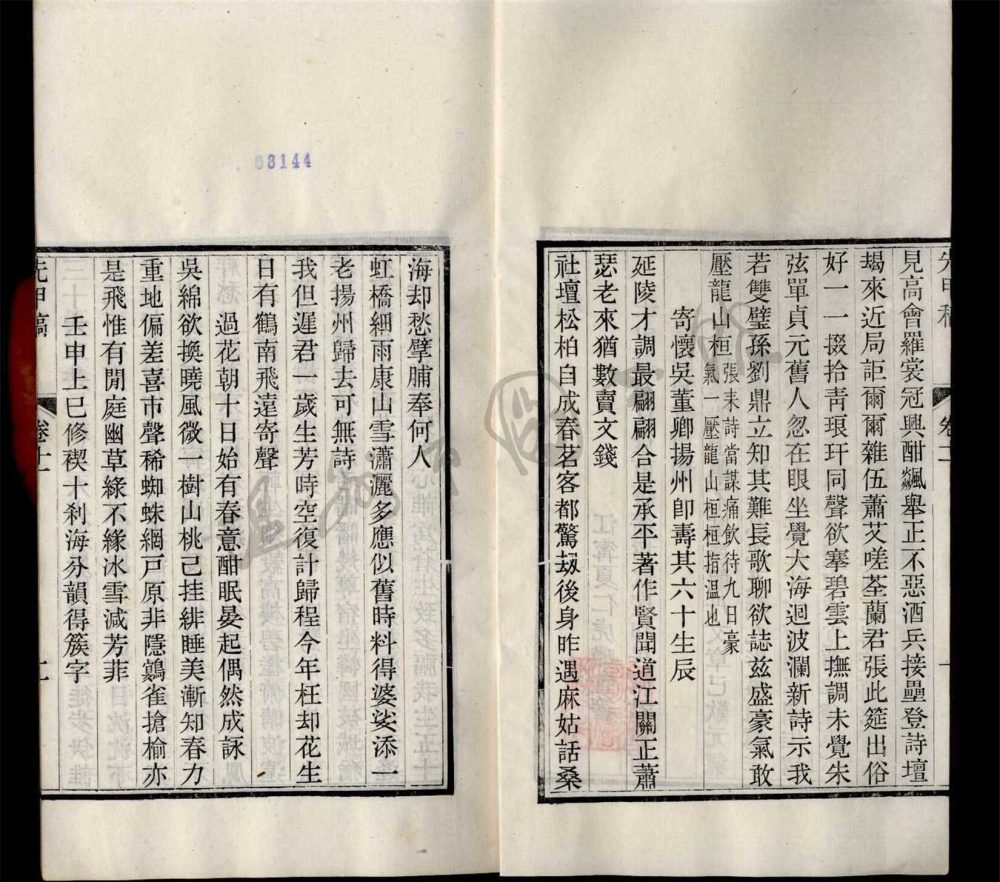 見高會羅裳冠興酣飄舉正不惡酒兵接壘登詩壇
朅來近局詎爾爾雜伍蕭艾嗟荃蘭君張此筵出俗
好一一掇拾青琅玕同聲欲搴碧雲上撫調未覺朱
弦單貞元舊人忽在眼坐覺大海迴波瀾新詩示我
若雙璧孫劉鼎立知其難長歌聊欲誌茲盛豪氣敢
壓龍山桓張耒詩當謀痛飲待九日豪
氣一壓龍山桓桓指溫也
寄懷吳董卿揚州卽壽其六十生辰
延陵才調最翩翩合是承平著作賢聞道江關正蕭
瑟老來猶數賣文錢
社壇松柏自成春茗客都驚刼後身昨遇麻姑話桑
卷十二
海却愁擘脯奉何人
虹橋細雨康山雪瀟灑多應似舊時料得婆娑添一
老揚州歸去可無詩
我但遲君一歲生芳時空復計歸程今年枉却花生
日有鶴南飛遠寄聲
過花朝十日始有春意酣眠晏起偶然成詠
吳綿欲換曉風微一樹山桃已挂緋睡美漸知春力
重地偏差喜市聲稀蜘蛛網戶原非隱鷃雀搶榆亦
是飛惟有閒庭幽草綠不緣冰雪減芳菲
壬申上巳修禊十刹海分韻得簇字
先甲稿
03144